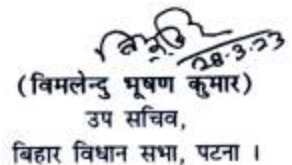 28.3.23
(विमलेन्दु भूषण कुमार)
उप सचिव,
बिहार विधान सभा, पटना ।